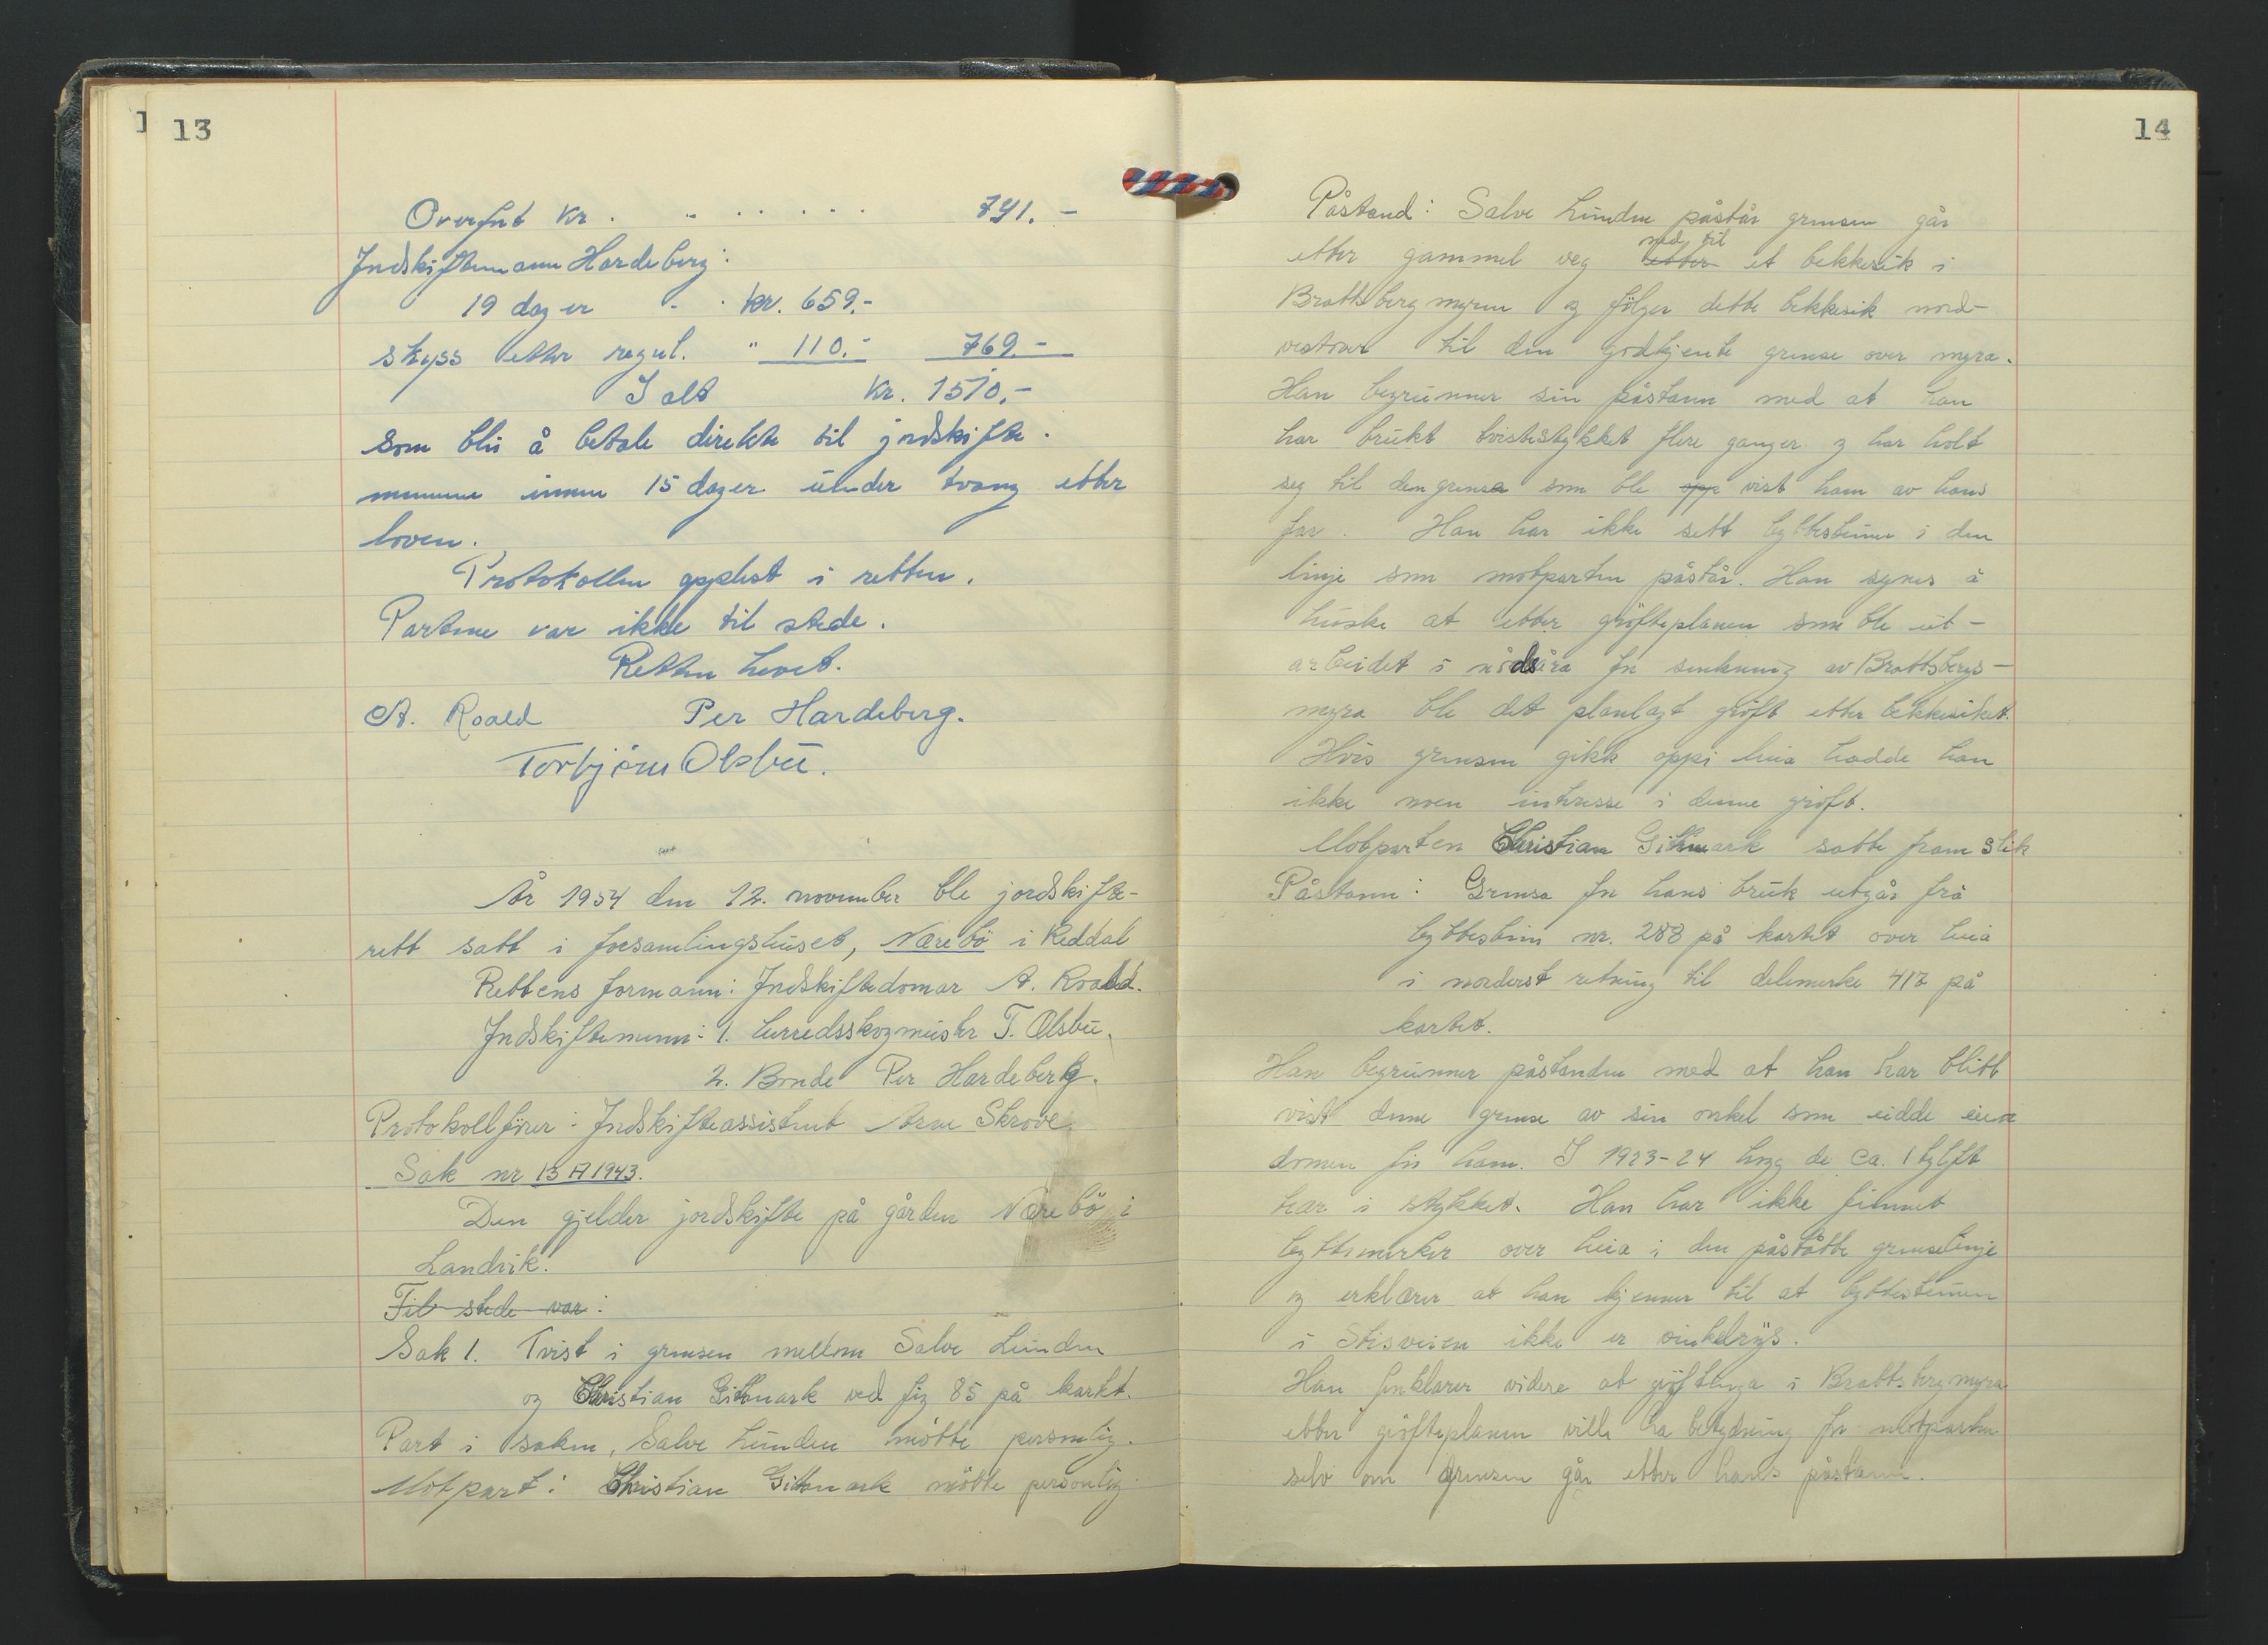 13
Overført kr. - . . . . 741.-
Jordskiftemann Hardeberg:
19 dager - . kr. 659.-
skyss etter regul. " 110.- 769.-
I alt kr. 1510.-
som blir å betale direkte til jordskifte-
mennene innen 15 dager under tvang etter
loven.
Protokollen opplest i retten.
Partene var ikke til stede.
Retten hevet.
A. Roald Per Hardeberg.
Torbjörn Olsbu.
År 1954 den 12. november ble jordskifte-
rett satt i forsamlingshuset, Nærebö i Reddal
Rettens formann: Jordskiftedomar A. Roald.
Jordskiftemenn: 1. herredsskogmeister T. Olsbu.
2. Bonde Per Hardeberg.
Protokollförer: Jordskifteassistent Arne Skrove.
Sak nr 13 A 1943.
Den gjelder jordskifte på gården Nærebö i
Landvik.
Til stede var:
Sak 1. Tvist i grensen mellom Salve Lunden
og Christian Gitmark ved fig 85 på kartet.
Part i saken, Salve Lunden mötte personlig.
Motpart: Christian Gitmark mötte personlig.
14
Påstand: Salve Lunden påstår grensen går
ned til
etter gammel veg etter et bekkesik i
Brattsbergmyren og fölger dette bekkesik nord-
vestover til den godkjente grense over myra.
Han begrunner sin påstann med at han
har brukt tvistestykket flere ganger og har holt
seg til den grensa som ble opp vist ham av hans
far. Han har ikke sett byttesteiner i den
linje som motparten påstår. Han synes å
huske at etter gröfteplanen som ble ut-
arbeidet i nödsåra for senkning av Brattsbergs-
myra ble det planlagt gröft etter bekkesiket.
Hvis grensen gikk oppi heia hadde han
ikke noen interesse i denne gröft.
Motparten Christian Gitmark satte fram slik
Påstann: Grensa for hans bruk utgår frå
byttestein nr. 288 på kartet over heia
i nordöst retning til delemerke 417 på
kartet.
Han begrunner påstanden med at han har blitt
vist denne grense av sin onkel som eidde eien
domen för ham. I 1923-24 hogg de ca. 1 tylft
har i stykket. Han har ikke funnet
byttemerker over heia i den påståtte grenselinje
og erklærer at han kjenner til at byttesteinen
i Stisveien ikke er vinkelrys.
Han forklarer videre at gröftinga i Brattsbergmyra
etter gröfteplanen ville ha betydning for motparten
selv om grensen går etter hans påstann.